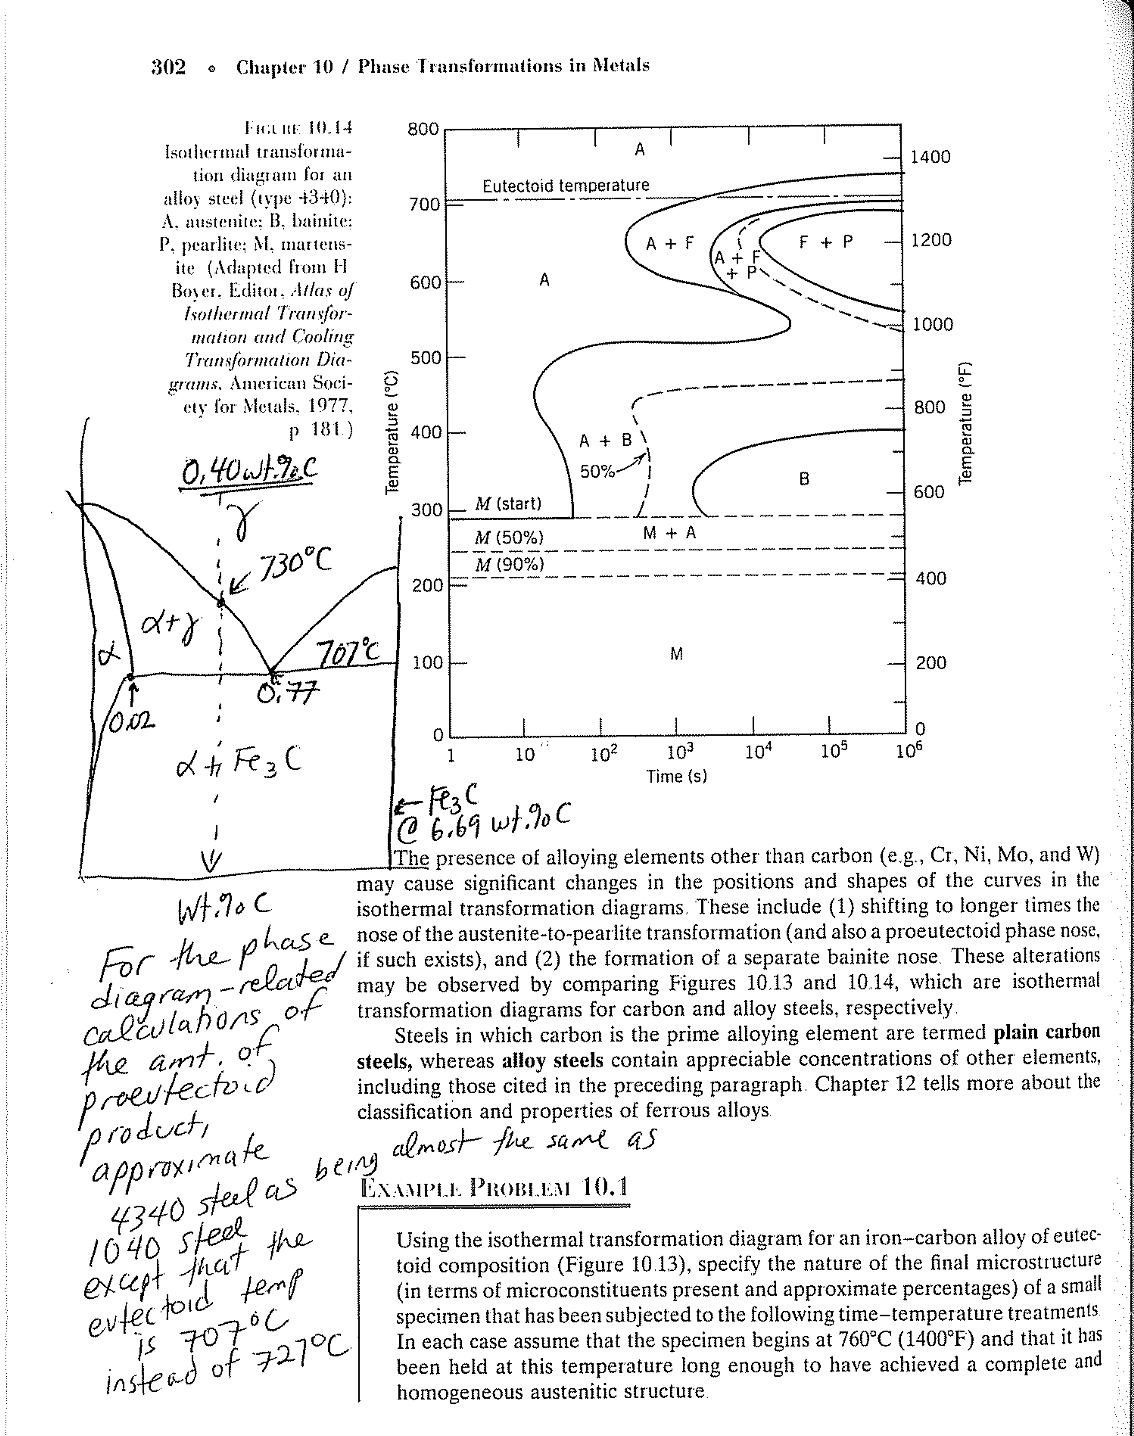 302 • Chapter 10 / Phase Transformations in Metals
FIGURE 10.14
Isothermal transforma-
tion diagram for an
alloy steel (type 4340):
A, austenite; B, bainite;
P, pearlite; M, martens-
ite (Adapted from H
Boyer, Editor, Atlas of
Isothermal Transfor-
mation and Cooling
Transformation Dia-
grams, American Soci-
ety for Metals, 1977,
p 181.)
800
700
600
500
400
300
200
100
0
Temperature (°C)
A
Eutectoid temperature
A + F
A + F
+ P
F + P
A
A + B
50%
B
M (start)
M + A
M (50%)
M (90%)
M
1400
1200
1000
800
600
400
200
0
Temperature (°F)
1
10
10²
10³
10⁴
10⁵
10⁶
Time (s)
0.40 wt.% C
γ
730°C
α+γ
α
707°C
0.77
0.02
α + Fe₃C
← Fe₃C
@ 6.69 wt.% C
Wt.% C
For the phase
diagram-related
calculations of
the amt. of
proeutectoid
product,
approximate
4340 steel as being almost the same as
1040 steel
except that the
eutectoid temp
is 707°C
instead of 727°C
The presence of alloying elements other than carbon (e.g., Cr, Ni, Mo, and W)
may cause significant changes in the positions and shapes of the curves in the
isothermal transformation diagrams. These include (1) shifting to longer times the
nose of the austenite-to-pearlite transformation (and also a proeutectoid phase nose,
if such exists), and (2) the formation of a separate bainite nose. These alterations
may be observed by comparing Figures 10.13 and 10.14, which are isothermal
transformation diagrams for carbon and alloy steels, respectively.
Steels in which carbon is the prime alloying element are termed plain carbon
steels, whereas alloy steels contain appreciable concentrations of other elements,
including those cited in the preceding paragraph. Chapter 12 tells more about the
classification and properties of ferrous alloys.
EXAMPLE PROBLEM 10.1
Using the isothermal transformation diagram for an iron–carbon alloy of eutec-
toid composition (Figure 10.13), specify the nature of the final microstructure
(in terms of microconstituents present and approximate percentages) of a small
specimen that has been subjected to the following time–temperature treatments.
In each case assume that the specimen begins at 760°C (1400°F) and that it has
been held at this temperature long enough to have achieved a complete and
homogeneous austenitic structure.